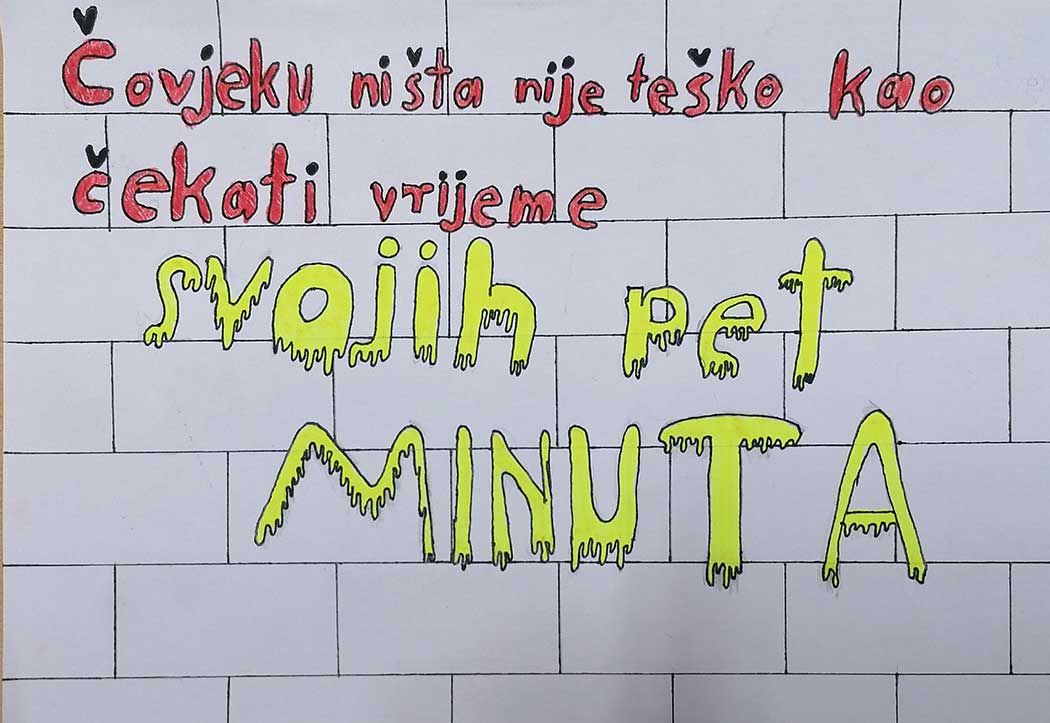 Čovjeku ništa nije teško kao
čekati vrijeme
svojih pet
MINUTA